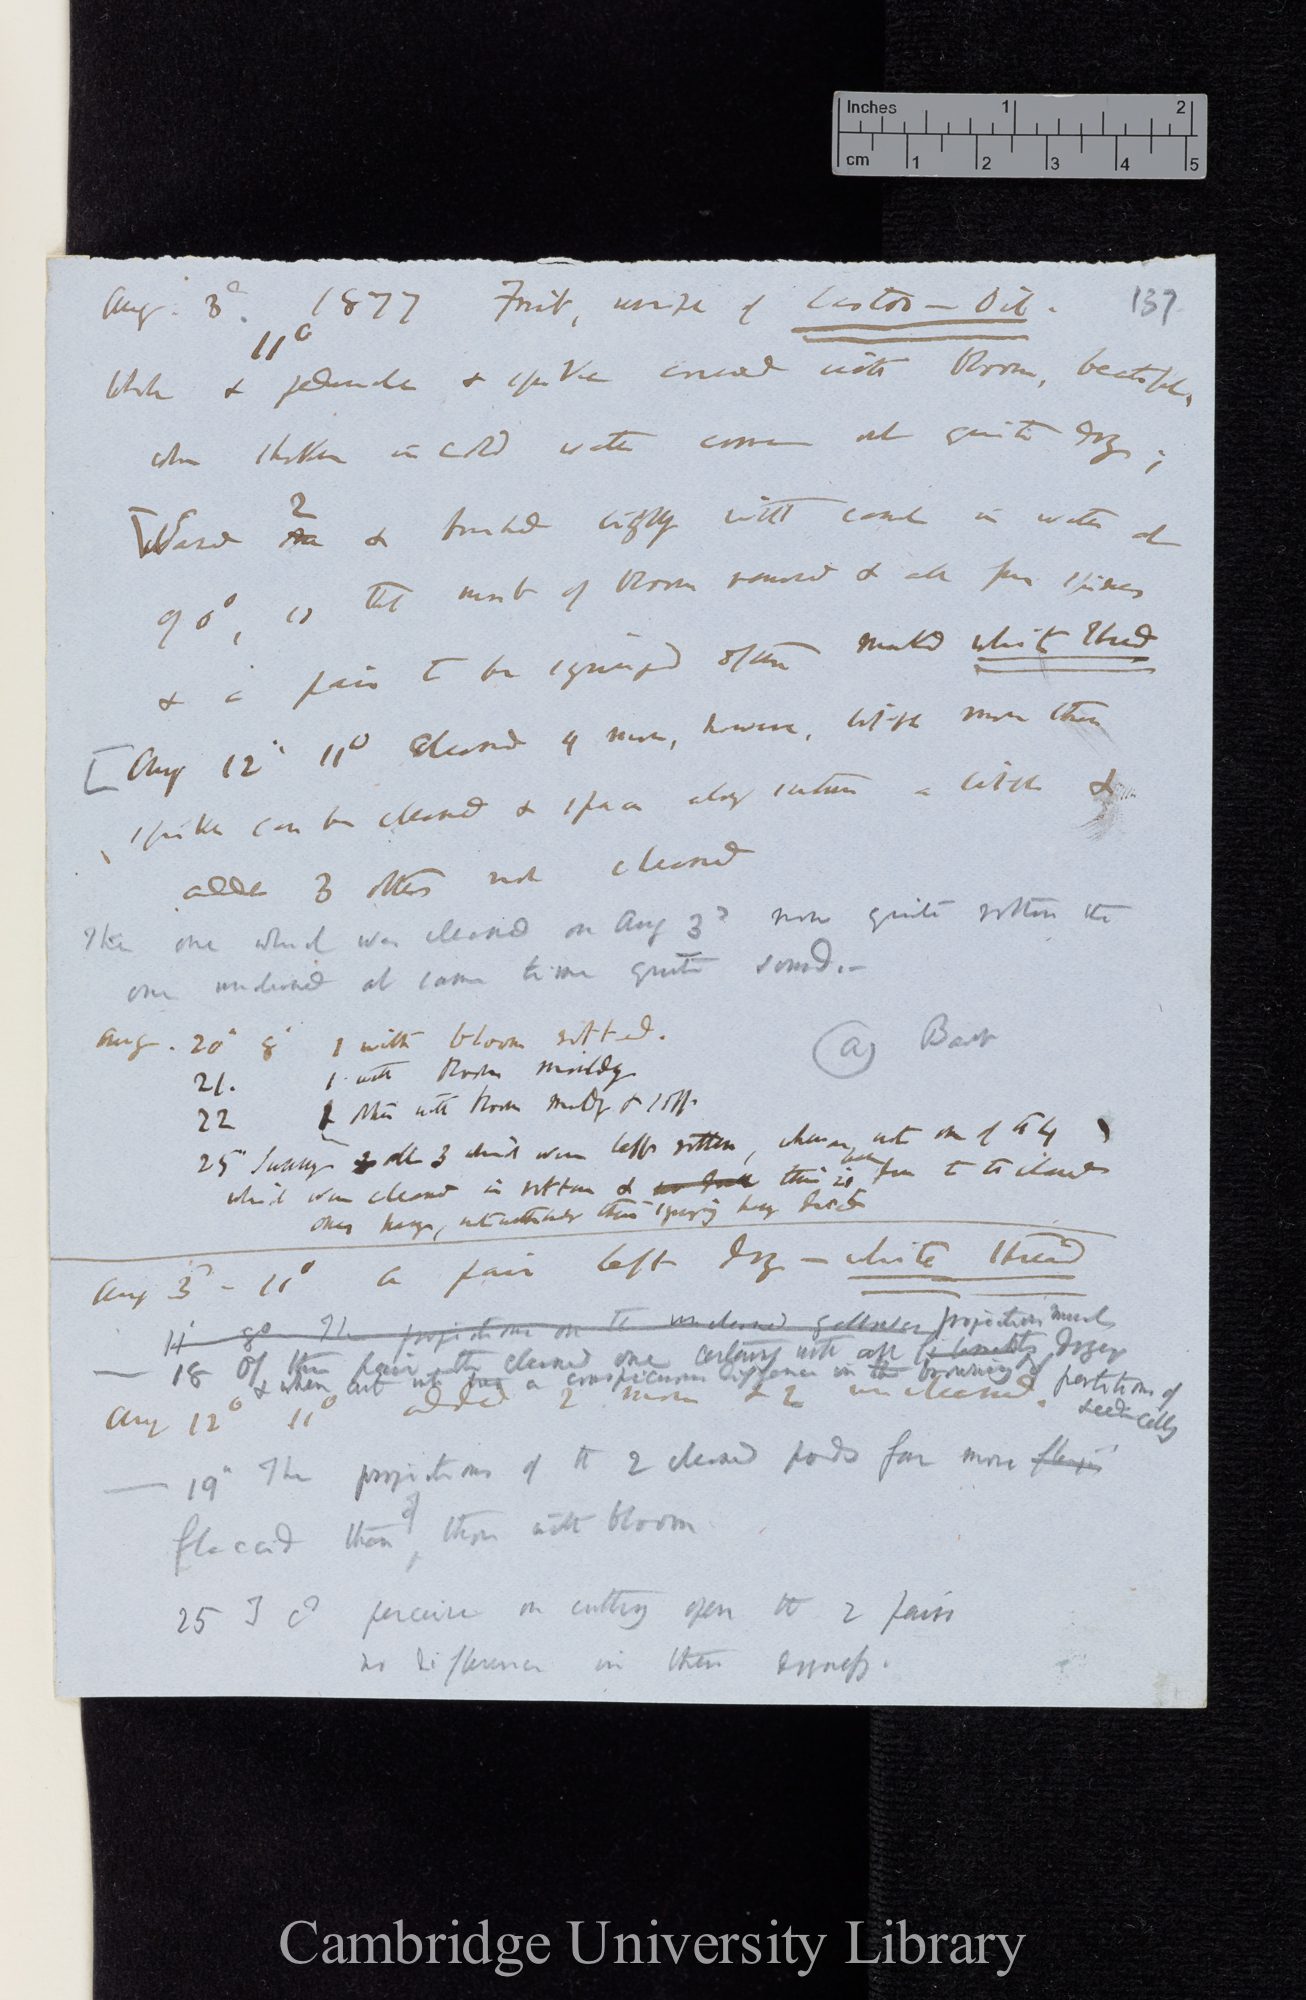 Inches 1 2
cm 1 2 3 4 5
137
Aug. 3d. 1877 Fruit, unripe of Castor-Oil.
11°
whole & peduncle & spikes covered with bloom, beautiful,
when shaken in cold water comes out quite dry;
2
& brushed lightly with camel in water at
90°, so that most of bloom removed & also few spines
& a pair to be syringed often marked white thread
[Aug 12th 11° Cleaned 4 more, however, little more than
spikes can be cleaned & space along suture a little &
added 3 others not cleaned
The one which was cleaned on Aug 3d now quite rotten the
one uncleaned at same time quite sound.—
Aug. 20th 8° 1 with bloom rotted.
(a) Back
21. 1 with bloom mouldy
22 1 other with bloom mouldy & soft
25th all 3 which were left rotten, whereas not one of the 4
which was cleaned is rotten & this is to the
notwithstanding their syringing
Aug 3d - 11° a pair left dry — white thread
14 8° The projections on the uncleaned
— 18 Of the pair the cleaned one certainly with all projections much dryer
& when cut a conspicuous difference in the browning of partitions of
seed-cells
Aug 12° 11° added 2 more & 2 uncleaned.
— 19th The projections of the 2 cleaned pods far more
flaccid than of those with bloom
25 I cd perceive on cutting open the 2 pairs
no difference in their dryness.
Cambridge University Library